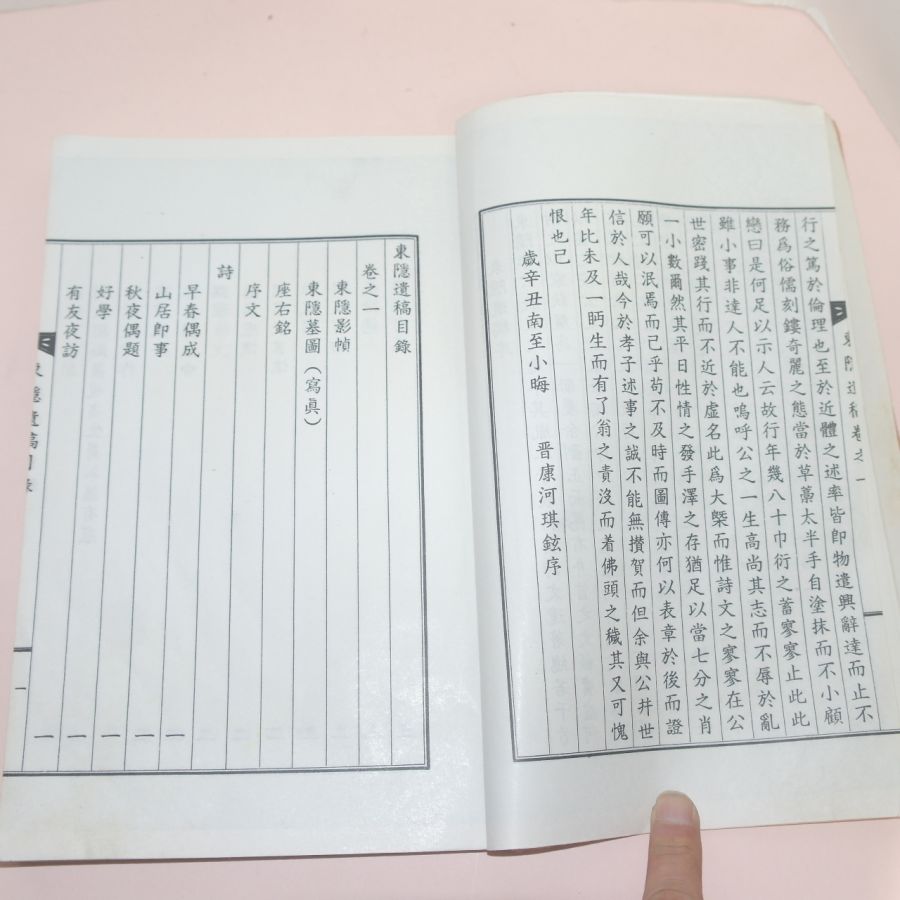 行之篤於倫理也至於近體之述率皆卽物遣興辭達而止不
務爲俗儒刻鏤奇麗之態當於草藁太半手自塗抹而不小顧
戀曰是何足以示人云故行年幾八十巾衍之蓄寥寥止此此
雖小事非達人不能也嗚呼公之一生高尚其志而不辱於亂
世密踐其行而不近於虛名此爲大槩而惟詩文之寥寥在公
一小數爾然其平日性情之發手澤之存猶足以當七分之肖
願可以泯焉而已乎苟不及時而圖傳亦何以表章於後而證
信於人哉今於孝子述事之誠不能無攢賀而但余與公幷世
年比未及一眄生而有了翁之責沒而着佛頭之穢其又可愧
恨也己
歲辛丑南至小晦 晋康河琪鉉序
東隱遺稿卷之一
東隱遺稿目錄
卷之一
東隱影幀
東隱墓圖(寫眞)
座右銘
序文
詩
早春偶成 一
山居卽事 一
秋夜偶題 一
好學 一
有友夜訪 一
東隱遺稿目錄 一